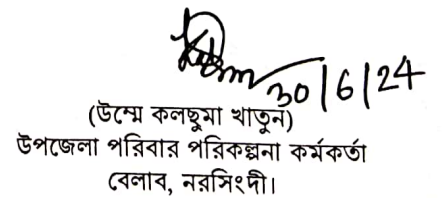 30/6/24
(উম্মে কলছুমা খাতুন)
উপজেলা পরিবার পরিকল্পনা কর্মকর্তা
বেলাব, নরসিংদী।